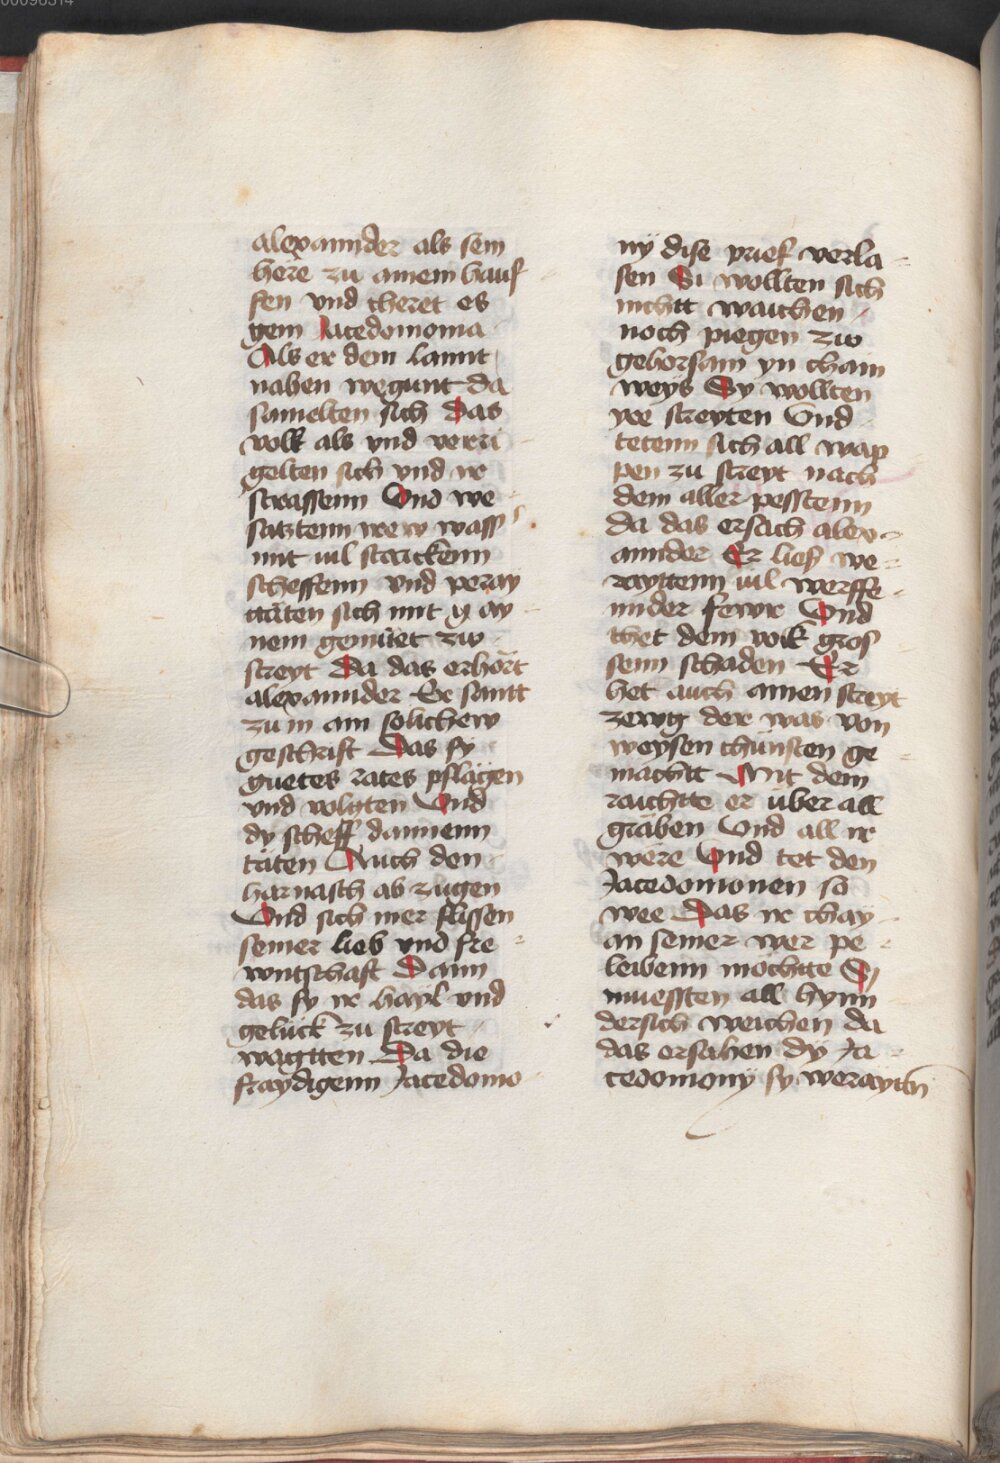 alexannder als sein
here zu ainem hauf
fen vnd cheret es
gein lacedomonia
Als er dem lannt
nahen wegunt da
samelten sich das
volk als vnd verri
gelten sich vnd ir
strassenn Vnd we
satztenn irew wass
mit uil starckenn
scheffenn vnd peray
ttäten sich mit
nem gemütet zw
streyt Da das erhört
alexannder Er santt
zu in ain solichew
geschrift Das sy
guetes rates pflägen
vnd volgten Vnd
dy scheff dannenn
täten Auch den
harnasch ab zügen
Vnd sich mer flissen
seiner lieb vnd fre
wntschaft Dann
das sy ir hayl vnd
gelück zu streyt
wagtten Da die
fraydigenn lacedomo
ny dise prief verla
sen Si wollten sich
nichtt waichen
noch piegen zw
gehorsam yn chain
weys Sy wollten
ye streyten Vnd
tetenn sich all wap
pen zu streyt nach
dem aller pesstenn
da das ersach alex
annder Er lies we
rayttenn uil werffe
nnder fewr Vnd
thet dem volk gros
senn schaden Er
het auch ainen streyt
zewg der was von
weysen chünsten ge
machtt Mit dem
raichtte er über all
gräben Vnd all ir
were Vnd tet den
lacedomonen so
wee Das ir chay
an seiner wer pe
leibenn möchtte Sy
muessten all hynn
dersich weichen da
das ersahen dy la
cedomony sy weraytten